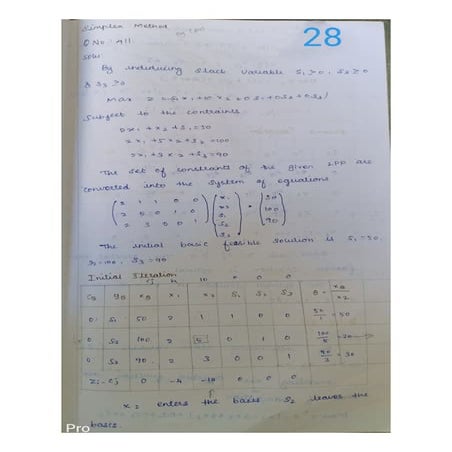 Simplex Method
28
Q No: 411
Soln:
By introducing slack variable S₁ ≥ 0, S₂ ≥ 0
& S₃ ≥ 0
Max Z = 4x₁ + 10x₂ + 0S₁ + 0S₂ + 0S₃
Subject to the contraints
2x₁ + x₂ + S₁ = 50
2x₁ + 5x₂ + S₂ = 100
2x₁ + 3x₂ + S₃ = 90
The set of constraints of the given LPP are
converted into the system of equations
( 2 1 1 0 0 ) ( x₁ ) ( 50 )
( 2 5 0 1 0 ) ( x₂ ) = ( 100 )
( 2 3 0 0 1 ) ( S₁ ) ( 90 )
S₂
S₃
The initial basic feasible solution is S₁ = 50,
S₂ = 100, S₃ = 90
Initial Iteration
Cj 4 10 0 0 0
CB YB XB x₁ x₂ S₁ S₂ S₃ θ = XB/x₂
0 S₁ 50 2 1 1 0 0 50/1 = 50
0 S₂ 100 2 5 0 1 0 100/5 = 20 →
0 S₃ 90 2 3 0 0 1 90/3 = 30
Zj - Cj 0 -4 -10 0 0 0
↑
x₂ enters the basis S₂ leaves the
basis.
Pro